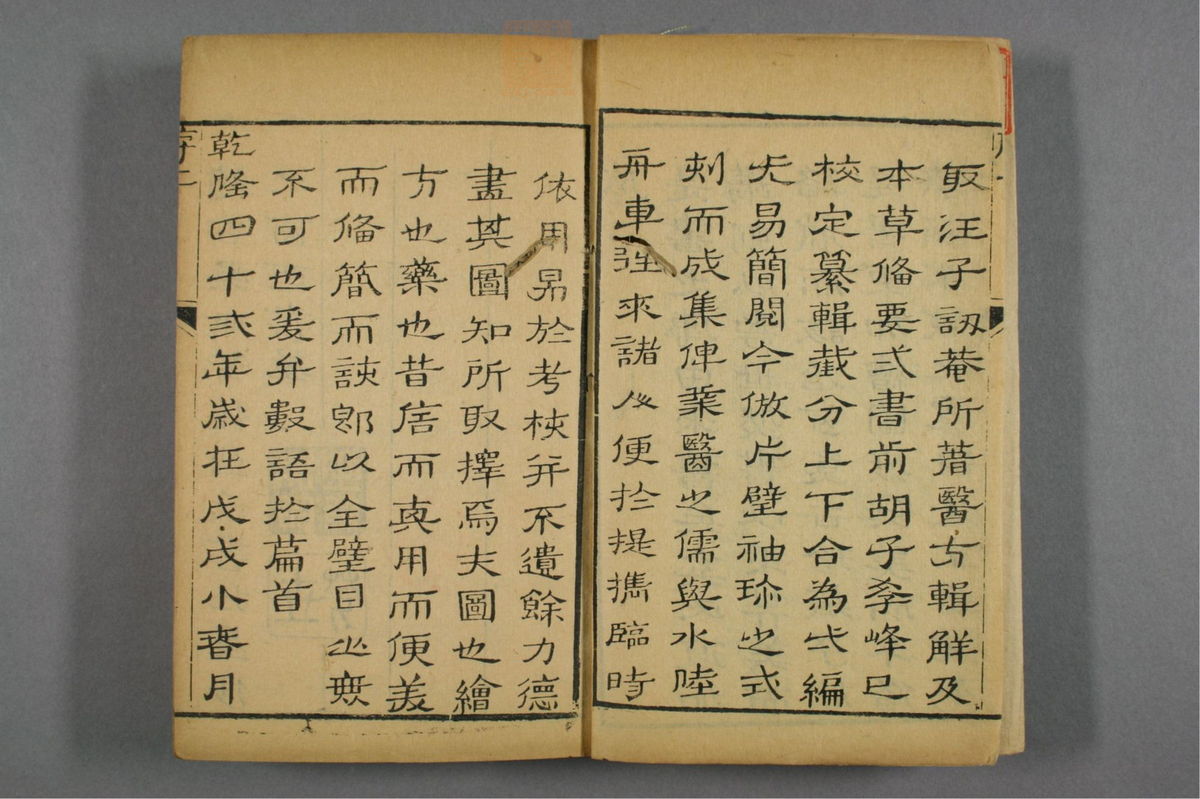 取汪子訒菴所著醫方輯解及
本草備要弍書前胡子李峰已
校定纂輯截分上下合為一編
尤易簡閱今倣片璧袖珍之式
刻而成集俾業醫之儒與水陸
舟車往來諸人便於提攜臨時
依用易於考核并不遺餘力德
畫其圖知所取擇焉夫圖也繪
方也藥也昔信而真用而便美
而備簡而該即以全璧目之無
不可也爰弁數語於篇首
乾隆四十弍年歲在戊戌小春月
序二